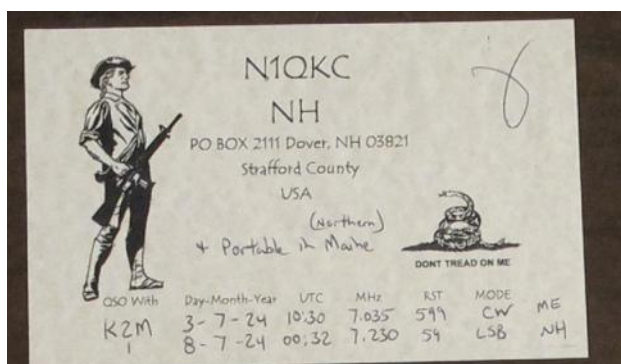 N1QKC
NH
PO BOX 2111 Dover, NH 03821
Strafford County
USA
(Northern)
+ Portable in Maine
DONT TREAD ON ME
QSO With Day-Month-Year UTC MHz RST MODE
K2M 3-7-24 10:30 7.035 599 CW ME
1 8-7-24 00:32 7.230 59 LSB NH